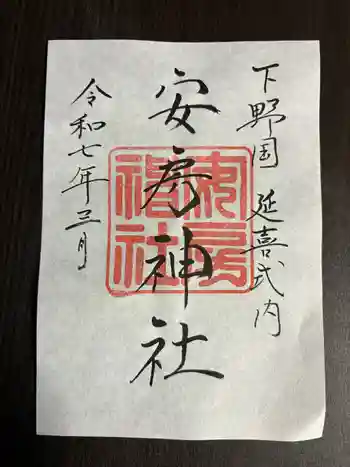 下野国 延喜式内
安房神社
安房神社
令和七年三月